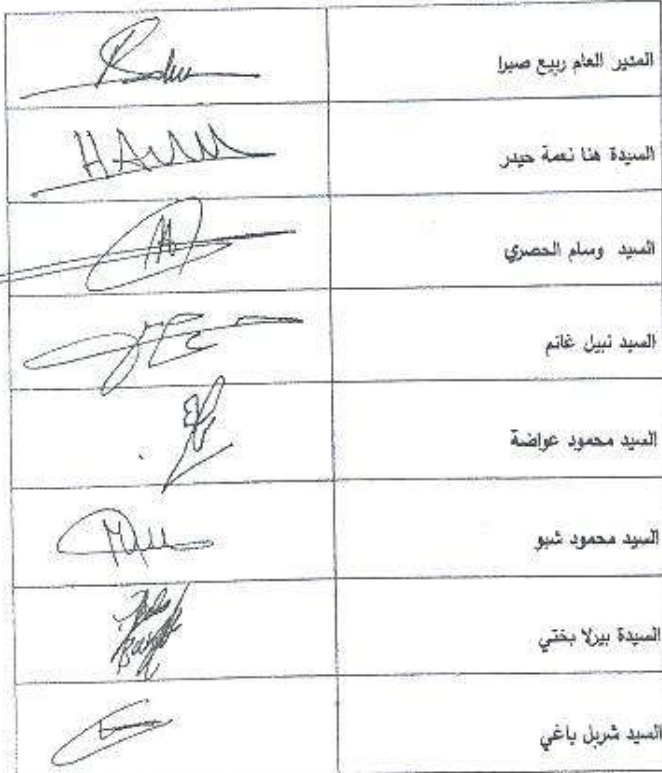 المدير العام ربيع صبرا
السيدة هنا نعمة حيدر
السيد وسام الحصري
السيد نبيل غانم
السيد محمود عواضة
السيد محمود شبو
السيدة بيرلا بختي
السيد شربل باغي